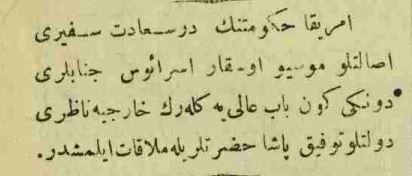 امریقا حکومتنك درسعادت سفیری
اصالتلو موسیو اوسقار اسرائوس جنابلری
دونكی كون باب عالی‌یه كله‌رك خارجیه ناظری
دولتلو توفیق پاشا حضرتلریله ملاقات ایلمشدر.